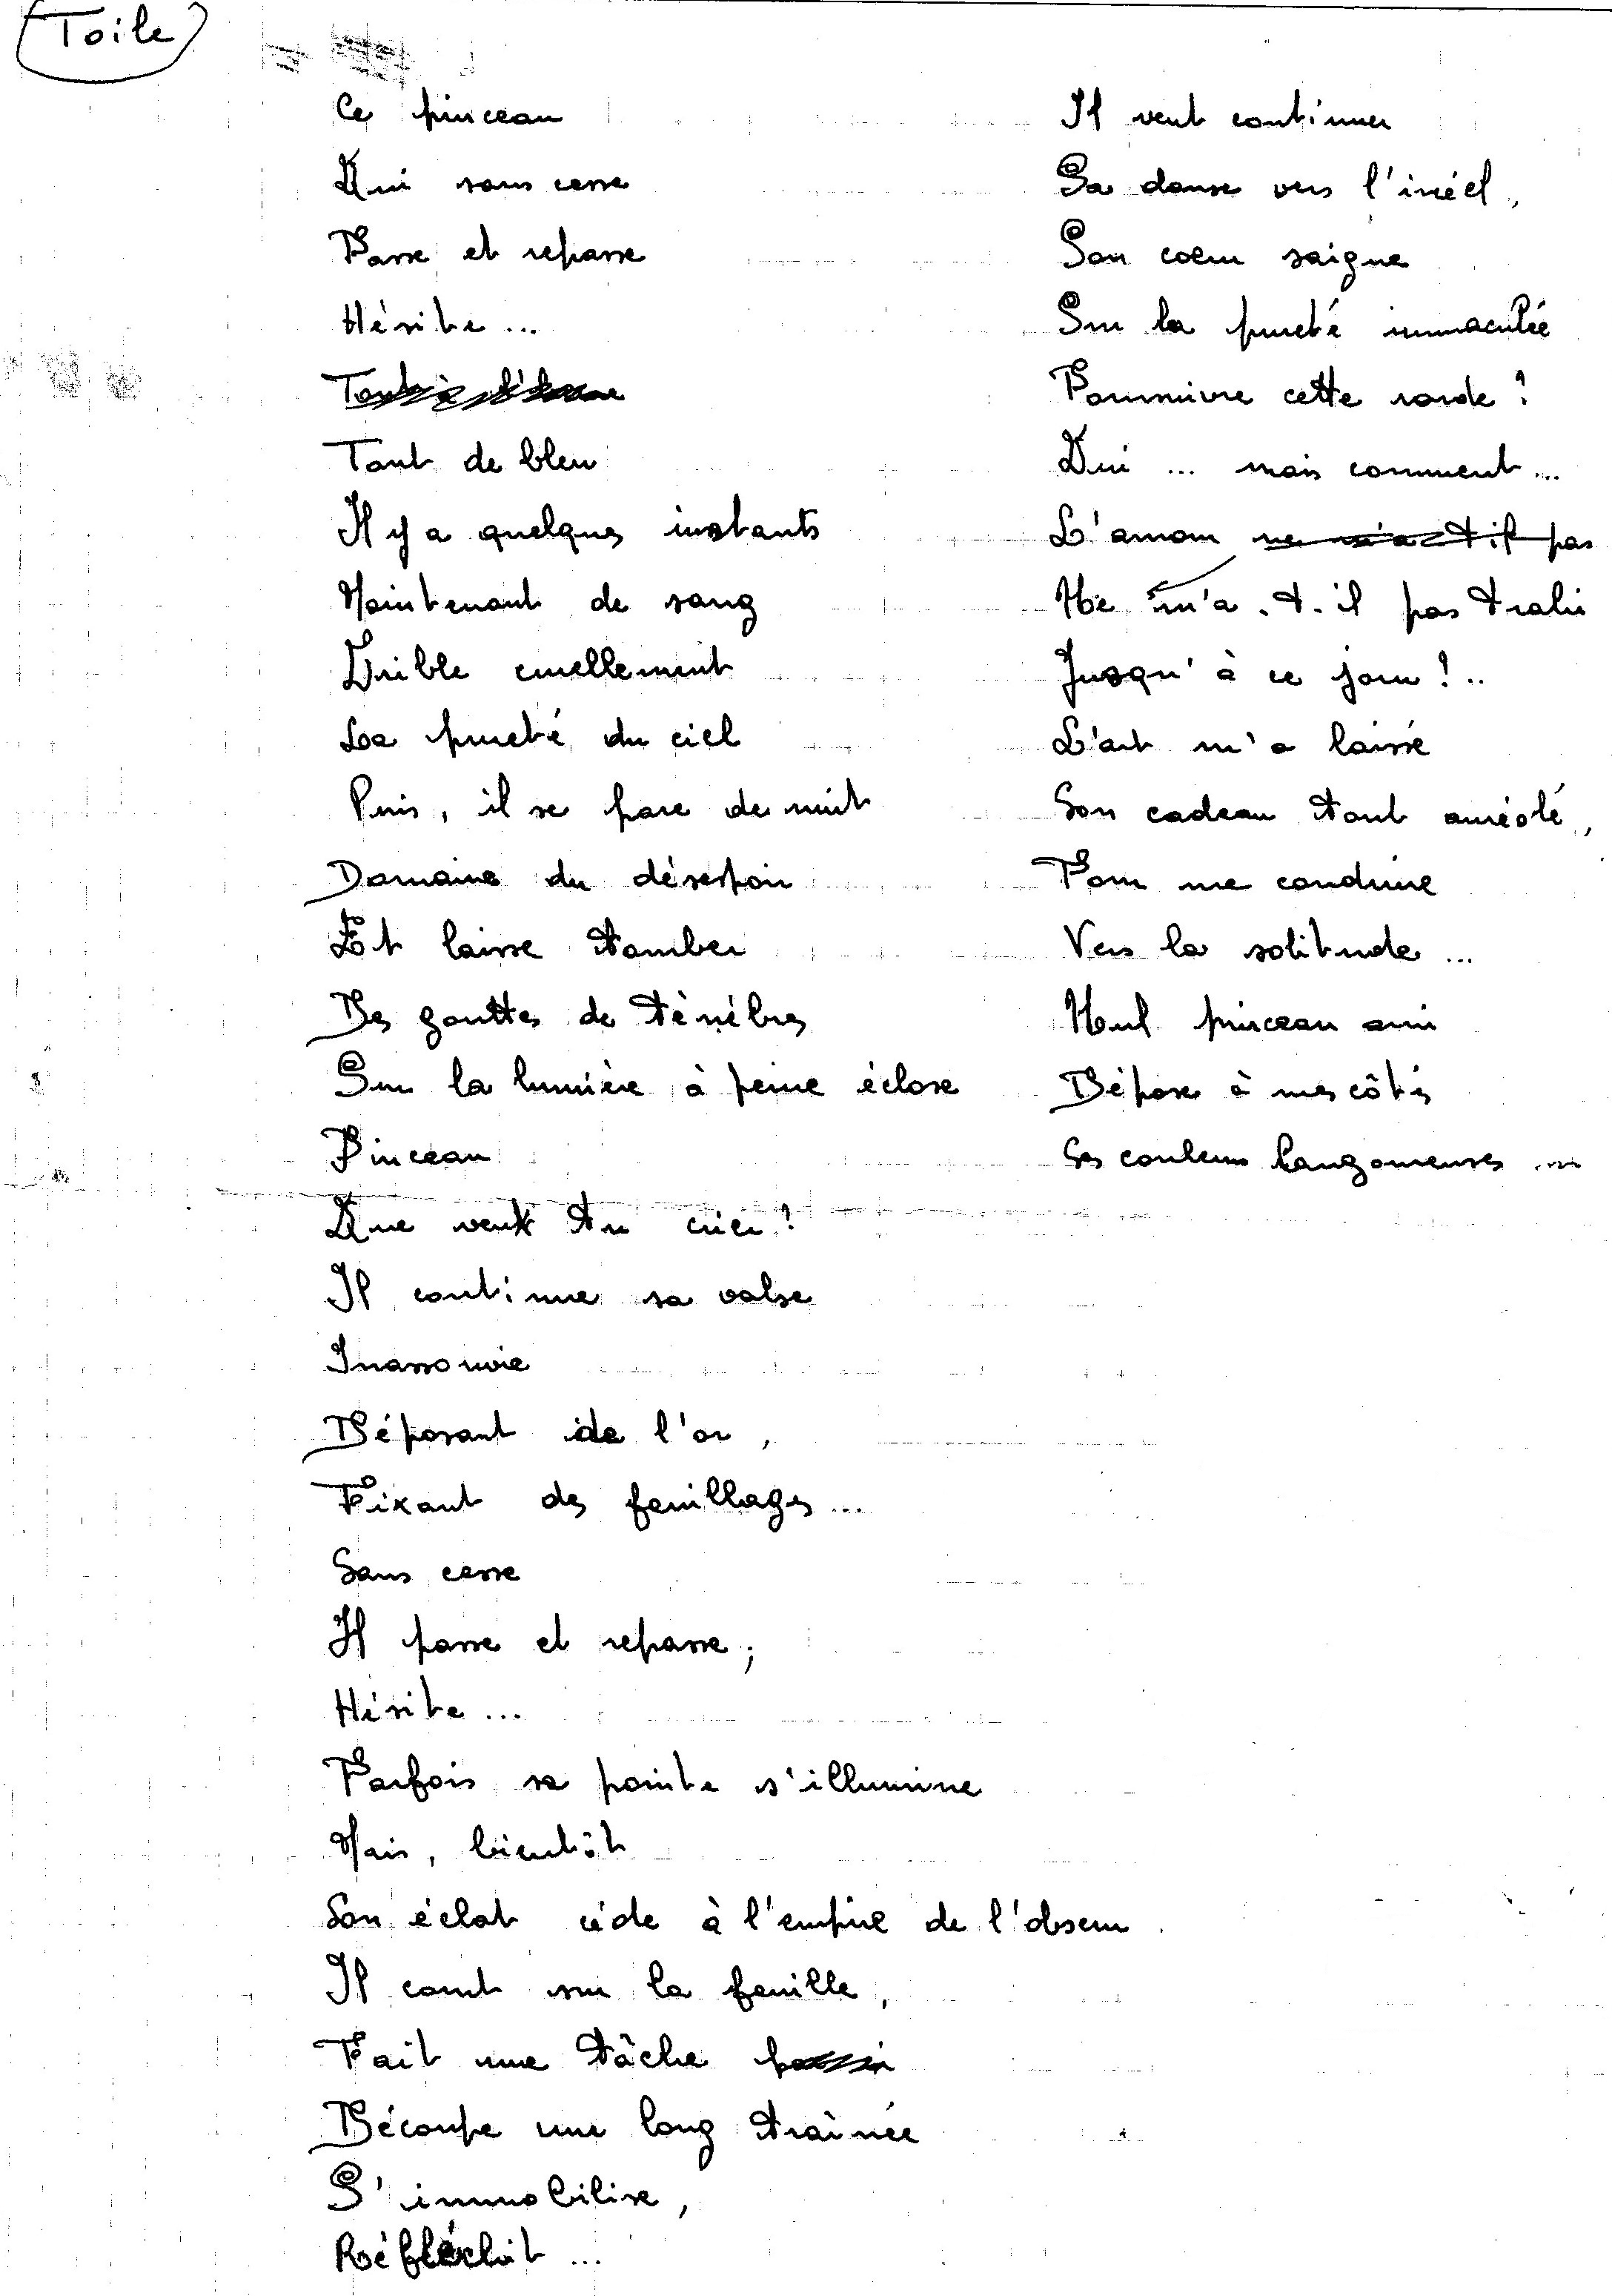 Toile
Ce pinceau
Qui sans cesse
Passe et repasse
Hésite...
Tant de bleu
Il y a quelques instants
Maintenant de sang
Crible cruellement
La pureté du ciel
Puis, il se pare de nuit
Domaine du désespoir
Et laisse tomber
Des gouttes de ténèbres
Sur la lumière à peine éclose
Pinceau
Que veux tu crier ?
Il continue sa valse
Inassouvie
Déposant de l'or,
Fixant des feuillages...
Sans cesse
Il passe et repasse ;
Hésite...
Parfois sa pointe s'illumine
Mais, bientôt
Son éclat cède à l'empire de l'obscur
Il court sur la feuille,
Fait une tâche
Découpe une long traînée
S'immobilise,
Réfléchit...
Il veut continuer
Sa danse vers l'irréel,
Son coeur saigne
Sur la pureté immaculée
Poursuivre cette ronde ?
Oui... mais comment...
L'amour ne m'a t il pas
Ne m'a.t.il pas trahi
Jusqu'à ce jour !..
L'art m'a laissé
Son cadeau tant auréolé,
Pour me conduire
Vers la solitude...
Nul pinceau ami
Dépose à mes côtés
Ses couleurs langoureuses...